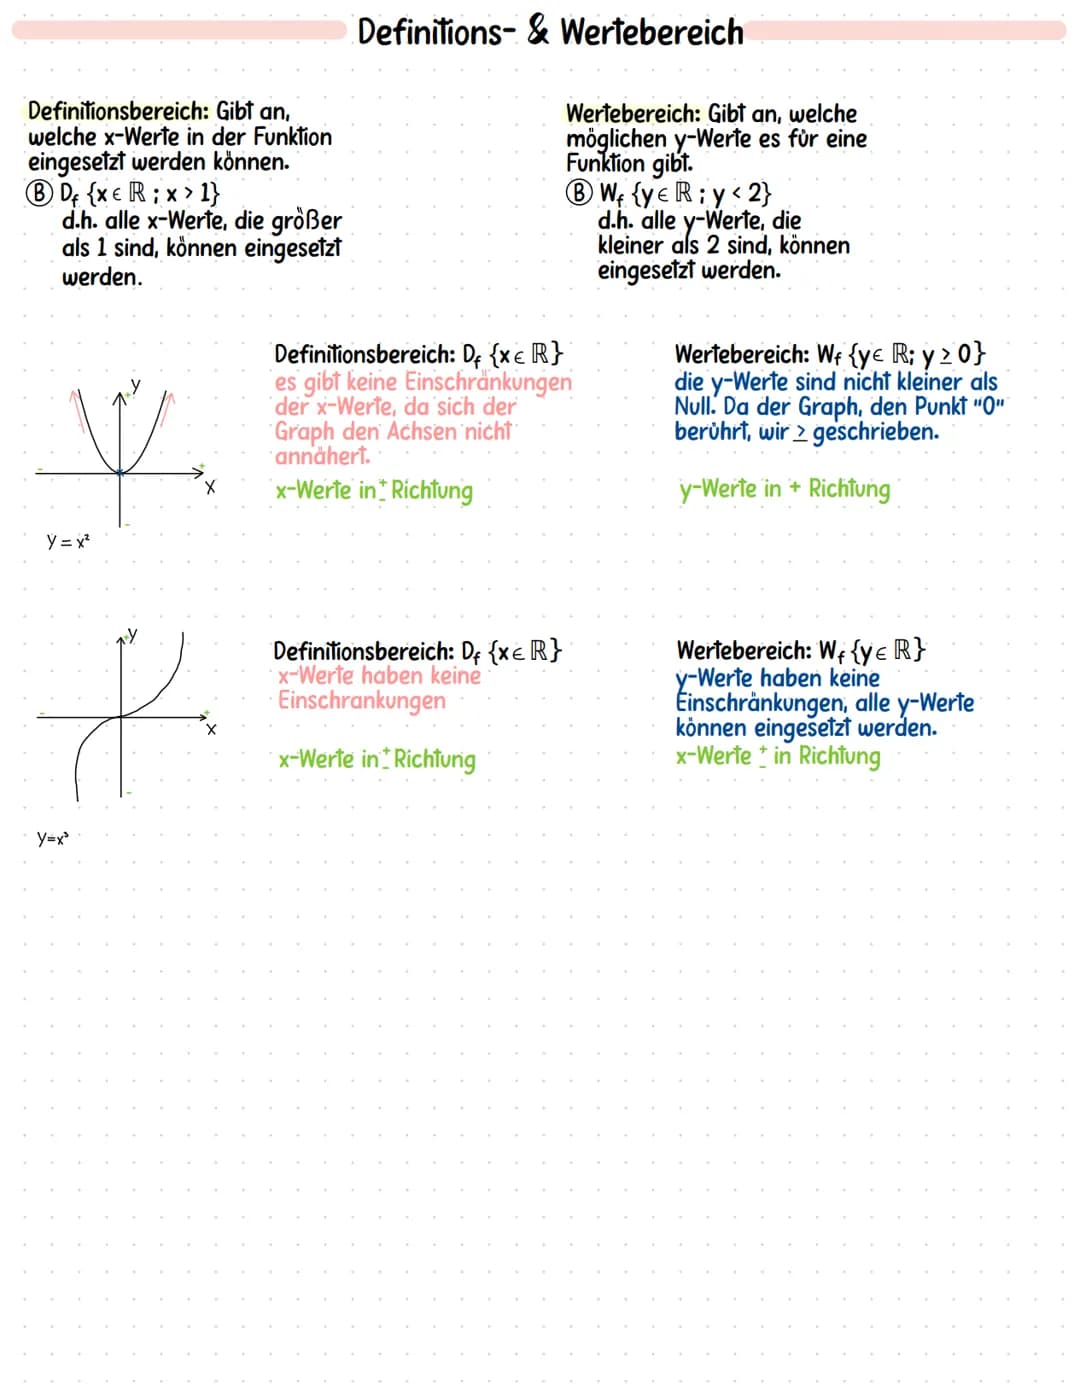 Definitions- & Wertebereich
Definitionsbereich: Gibt an,
welche x-Werte in der Funktion
eingesetzt werden können.
Ⓑ Df {x ∈ ℝ ; x > 1}
d.h. alle x-Werte, die größer
als 1 sind, können eingesetzt
werden.
Wertebereich: Gibt an, welche
möglichen y-Werte es für eine
Funktion gibt.
Ⓑ Wf {y ∈ ℝ ; y < 2}
d.h. alle y-Werte, die
kleiner als 2 sind, können
eingesetzt werden.
y
+
-
+
x
-
y = x²
Definitionsbereich: Df {x ∈ ℝ}
es gibt keine Einschränkungen
der x-Werte, da sich der
Graph den Achsen nicht
annähert.
x-Werte in ± Richtung
Wertebereich: Wf {y ∈ ℝ; y ≥ 0}
die y-Werte sind nicht kleiner als
Null. Da der Graph, den Punkt "0"
berührt, wir ≥ geschrieben.
y-Werte in + Richtung
+y
-
+
x
-
y=x³
Definitionsbereich: Df {x ∈ ℝ}
x-Werte haben keine
Einschrankungen
x-Werte in ± Richtung
Wertebereich: Wf {y ∈ ℝ}
y-Werte haben keine
Einschränkungen, alle y-Werte
können eingesetzt werden.
x-Werte ± in Richtung